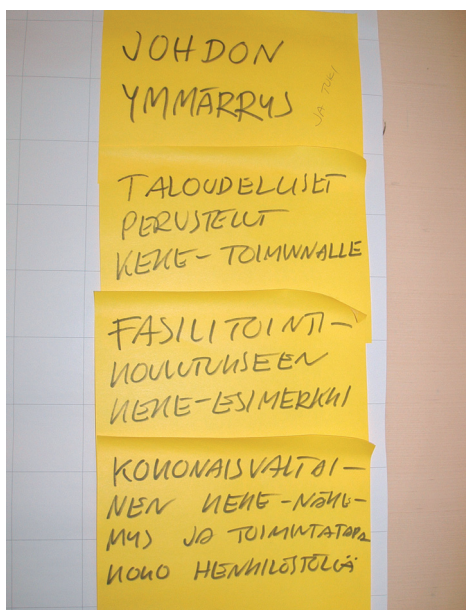 JOHDON
YMMÄRRYS
JA TUKI
TALOUDELLISET
PERUSTELUT
KEKE- TOIMINNALLE
FASILITOINTI-
KOULUTUKSEEN
KEKE-ESIMERKKI
KOKONAISVALTAI-
NEN KEKE-NÄKE-
MYS JA TOIMINTATAPA
KOKO HENKILÖSTÖLLÄ